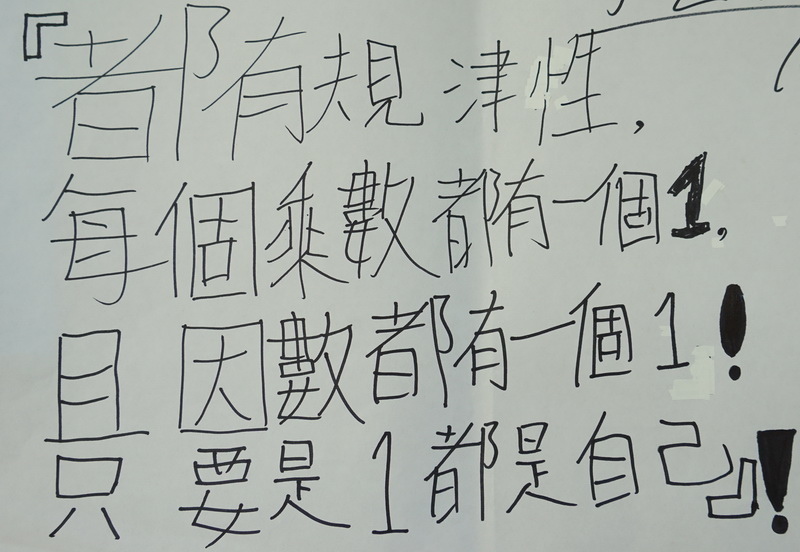 『都有規津性，
每個乘數都有一個1，
且因數都有一個1！
只要是1都是自己』！